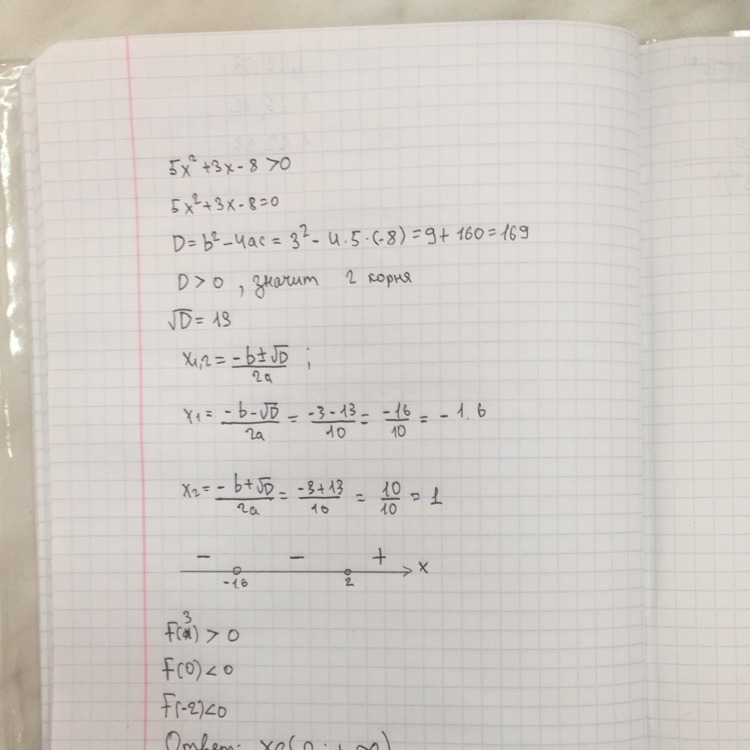 5x²+3x-8>0
5x²+3x-8=0
D=b²-4ac=3²-4·5·(-8)=9+160=169
D>0, значит 2 корня
√D=13
x₁,₂=(-b±√D)/2a ;
x₁=(-b-√D)/2a=(-3-13)/10=-16/10=-1.6
x₂=(-b+√D)/2a=(-3+13)/10=10/10=1
- - + x
-16 2
f(3)>0
f(0)<0
f(-2)<0
Ответ: